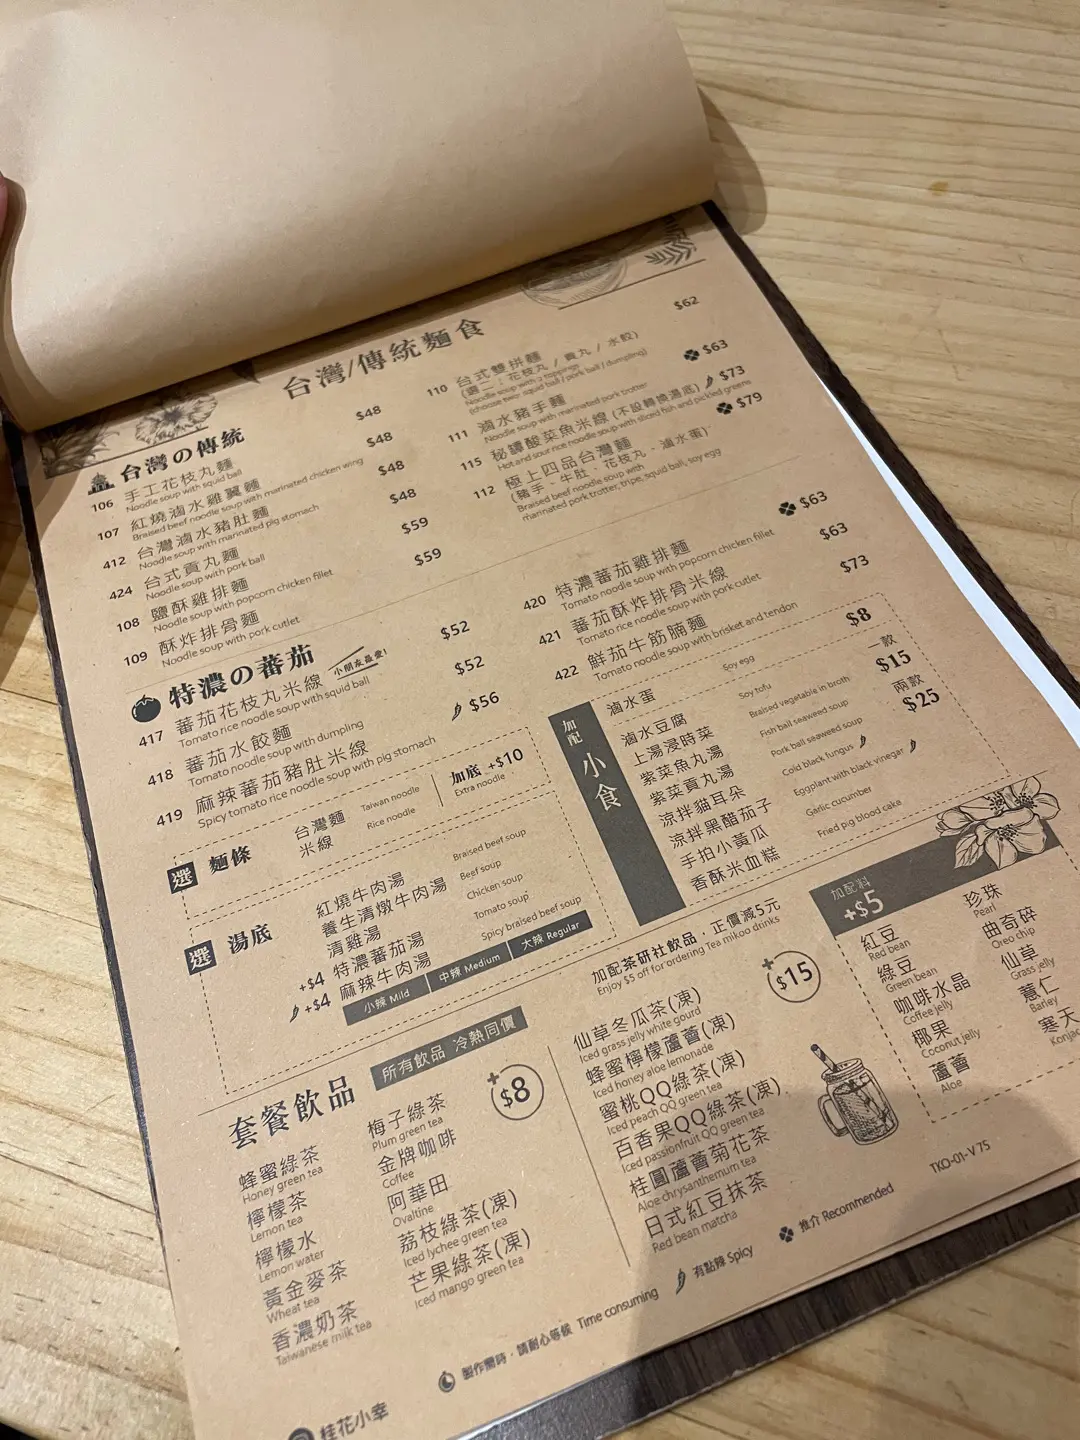 台灣/傳統麵食
台灣の傳統
106 手工花枝丸麵 $48
Noodle soup with squid ball
107 紅燒滷水雞翼麵 $48
Braised beef noodle soup with marinated chicken wing
412 台灣滷水豬肚麵 $48
Noodle soup with marinated pig stomach
424 台式貢丸麵 $48
Noodle soup with pork ball
108 鹽酥雞排麵 $59
Noodle soup with popcorn chicken fillet
109 酥炸排骨麵 $59
Noodle soup with pork cutlet
110 台式雙拼麵 $62
(選二：花枝丸 / 貢丸 / 水餃)
Noodle soup with 2 toppings
(choose two: squid ball / pork ball / dumpling)
111 滷水豬手麵 $63
Noodle soup with marinated pork trotter
115 秘鐏酸菜魚米線 (不設轉換湯底) $73
Hot and sour rice noodle soup with sliced fish and pickled greens
112 極上四品台灣麵 $79
(豬手、牛肚、花枝丸、滷水蛋)
Braised beef noodle soup with
marinated pork trotter, tripe, squid ball, soy egg
特濃の蕃茄
小朋友最愛!
417 蕃茄花枝丸米線 $52
Tomato rice noodle soup with squid ball
418 蕃茄水餃麵 $52
Tomato noodle soup with dumpling
419 麻辣蕃茄豬肚米線 $56
Spicy tomato rice noodle soup with pig stomach
420 特濃蕃茄雞排麵 $63
Tomato noodle soup with popcorn chicken fillet
421 蕃茄酥炸排骨米線 $63
Tomato rice noodle soup with pork cutlet
422 鮮茄牛筋腩麵 $73
Tomato noodle soup with brisket and tendon
選 麵條
台灣麵 Taiwan noodle
米線 Rice noodle
加底 +$10
Extra noodle
選 湯底
紅燒牛肉湯 Braised beef soup
養生清燉牛肉湯 Beef soup
清雞湯 Chicken soup
+$4 特濃蕃茄湯 Tomato soup
+$4 麻辣牛肉湯 Spicy braised beef soup
小辣 Mild 中辣 Medium 大辣 Regular
加配 小食
滷水蛋 Soy egg $8
滷水豆腐 Soy tofu
上湯浸時菜 Braised vegetable in broth
紫菜魚丸湯 Fish ball seaweed soup
紫菜貢丸湯 Pork ball seaweed soup
涼拌貓耳朵 Cold black fungus
涼拌黑醋茄子 Eggplant with black vinegar
手拍小黃瓜 Garlic cucumber
香酥米血糕 Fried pig blood cake
一款 $15
兩款 $25
套餐飲品
所有飲品 冷熱同價
+$8
蜂蜜綠茶
Honey green tea
檸檬茶
Lemon tea
檸檬水
Lemon water
黃金麥茶
Wheat tea
香濃奶茶
Taiwanese milk tea
梅子綠茶
Plum green tea
金牌咖啡
Coffee
阿華田
Ovaltine
荔枝綠茶(凍)
Iced lychee green tea
芒果綠茶(凍)
Iced mango green tea
加配茶研社飲品，正價減5元
Enjoy $5 off for ordering Tea mikoo drinks
+$15
仙草冬瓜茶(凍)
Iced grass jelly white gourd
蜂蜜檸檬蘆薈(凍)
Iced honey aloe lemonade
蜜桃QQ綠茶(凍)
Iced peach QQ green tea
百香果QQ綠茶(凍)
Iced passionfruit QQ green tea
桂圓蘆薈菊花茶
Aloe chrysanthemum tea
日式紅豆抹茶
Red bean matcha
加配料
+$5
紅豆
Red bean
綠豆
Green bean
咖啡水晶
Coffee jelly
椰果
Coconut jelly
蘆薈
Aloe
珍珠
Pearl
曲奇碎
Oreo chip
仙草
Grass jelly
薏仁
Barley
寒天
Konjac
TKO-01-V75
製作需時，請耐心等候 Time consuming
有點辣 Spicy
推介 Recommended
桂花小幸